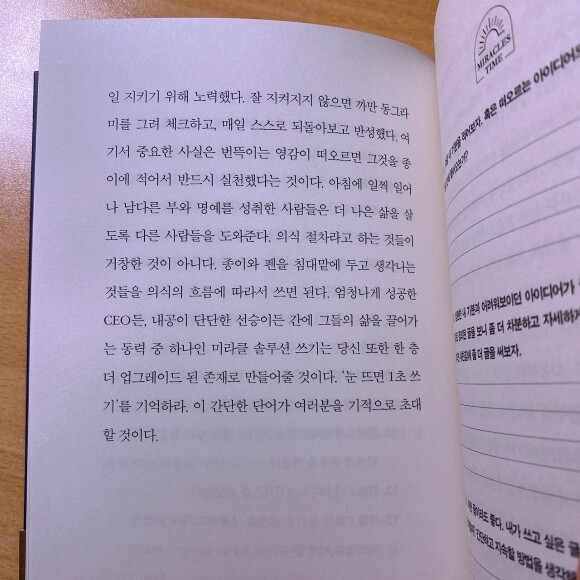 일 지키기 위해 노력했다. 잘 지켜지지 않으면 까만 동그라
미를 그려 체크하고, 매일 스스로 되돌아보고 반성했다. 여
기서 중요한 사실은 번뜩이는 영감이 떠오르면 그것을 종
이에 적어서 반드시 실천했다는 것이다. 아침에 일찍 일어
나 남다른 부와 명예를 성취한 사람들은 더 나은 삶을 살
도록 다른 사람들을 도와준다. 의식 절차라고 하는 것들이
거창한 것이 아니다. 종이와 펜을 침대맡에 두고 생각나는
것들을 의식의 흐름에 따라서 쓰면 된다. 엄청나게 성공한
CEO든, 내공이 단단한 선승이든 간에 그들의 삶을 끌어가
는 동력 중 하나인 미라클 솔루션 쓰기는 당신 또한 한 층
더 업그레이드 된 존재로 만들어줄 것이다. ‘눈 뜨면 1초 쓰
기’를 기억하라. 이 간단한 단어가 여러분을 기적으로 초대
할 것이다.
MIRACLES
TIME
내 기분을 적어보자. 혹은 떠오르는 아이디어
내 기분과 어려워보이던 아이디어가
글을 보니 좀 더 차분하고 자세하게
좀 더 글을 써보자.
좋다. 내가 쓰고 싶은 글
간단하고 지속할 방법을 생각